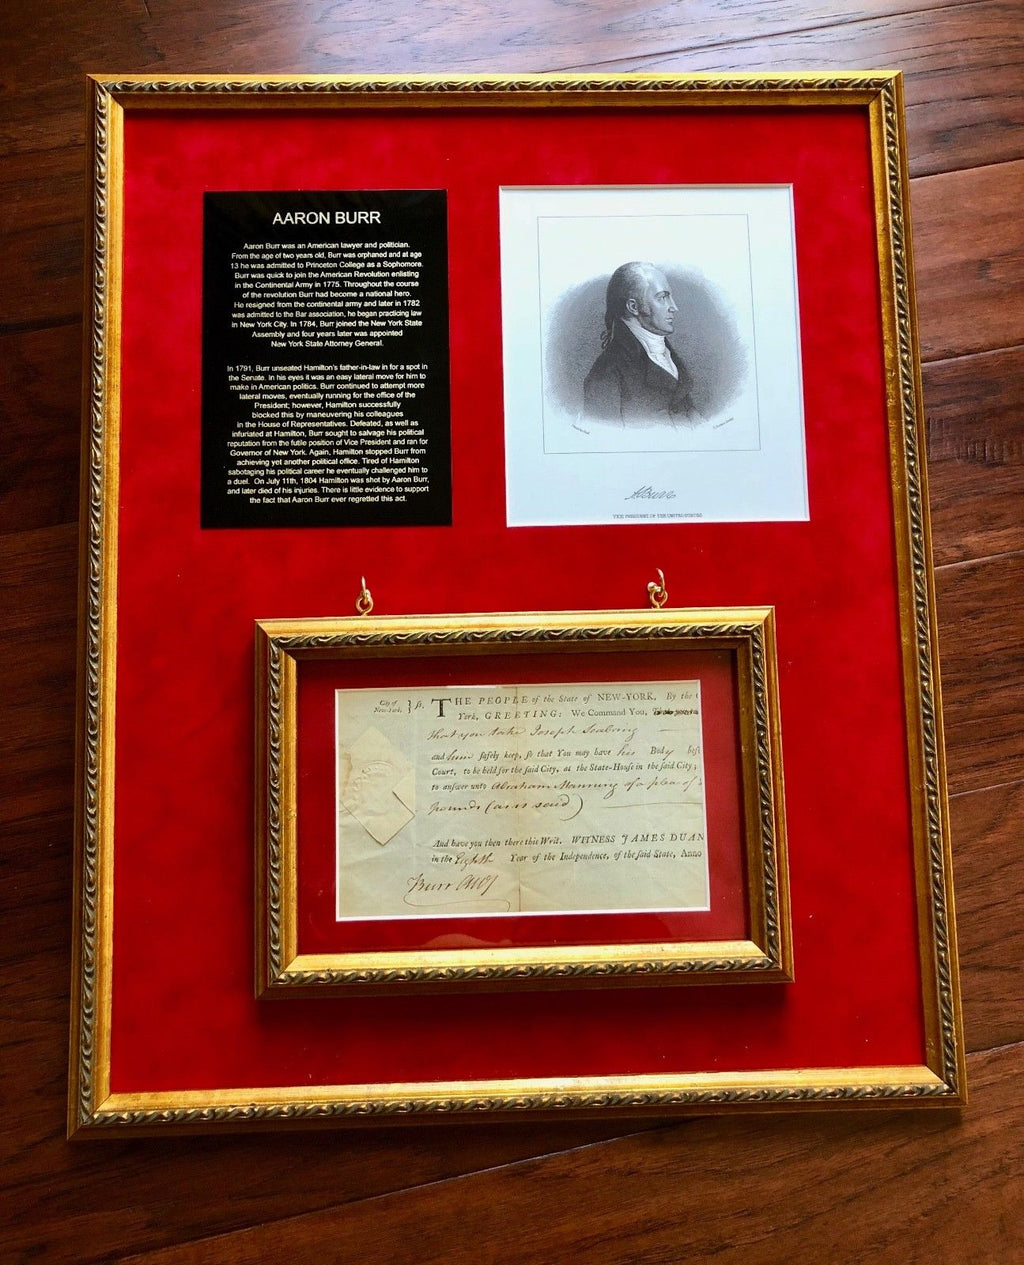 AARON BURR
Aaron Burr was an American lawyer and politician.
From the age of two years old, Burr was orphaned and at age
13 he was admitted to Princeton College as a Sophomore.
Burr was quick to join the American Revolution enlisting
in the Continental Army in 1775. Throughout the course
of the revolution Burr had become a national hero.
He resigned from the continental army and later in 1782
was admitted to the Bar association, he began practicing law
in New York City. In 1784, Burr joined the New York State
Assembly and four years later was appointed
New York State Attorney General.
In 1791, Burr unseated Hamilton's father-in-law in for a spot in
the Senate. In his eyes it was an easy lateral move for him to
make in American politics. Burr continued to attempt more
lateral moves, eventually running for the office of the
President; however, Hamilton successfully
blocked this by maneuvering his colleagues
in the House of Representatives. Defeated, as well as
infuriated at Hamilton, Burr sought to salvage his political
reputation from the futile position of Vice President and ran for
Governor of New York. Again, Hamilton stopped Burr from
achieving yet another political office. Tired of Hamilton
sabotaging his political career he eventually challenged him to
a duel. On July 11th, 1804 Hamilton was shot by Aaron Burr,
and later died of his injuries. There is little evidence to support
the fact that Aaron Burr ever regretted this act.
A Burr
VICE PRESIDENT OF THE UNITED STATES
City of
New-York,
} ſs. THE PEOPLE of the State of NEW-YORK, By the
York, GREETING: We Command You,
that you take Joseph Seabring
and him ſafely keep, ſo that You may have his Body befo
Court, to be held for the ſaid City, at the State-Houſe in the ſaid City;
to anſwer unto Abraham Manning of a plea of
pounds (as is said)
And have you then there this Writ. WITNESS JAMES DUAN
in the Eighth Year of the Independence, of the ſaid State, Anno
Burr Atty